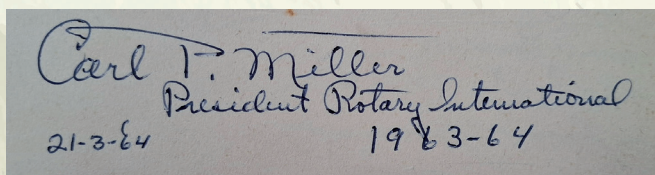 Carl P. Miller
President Rotary International
21-3-64 1963-64